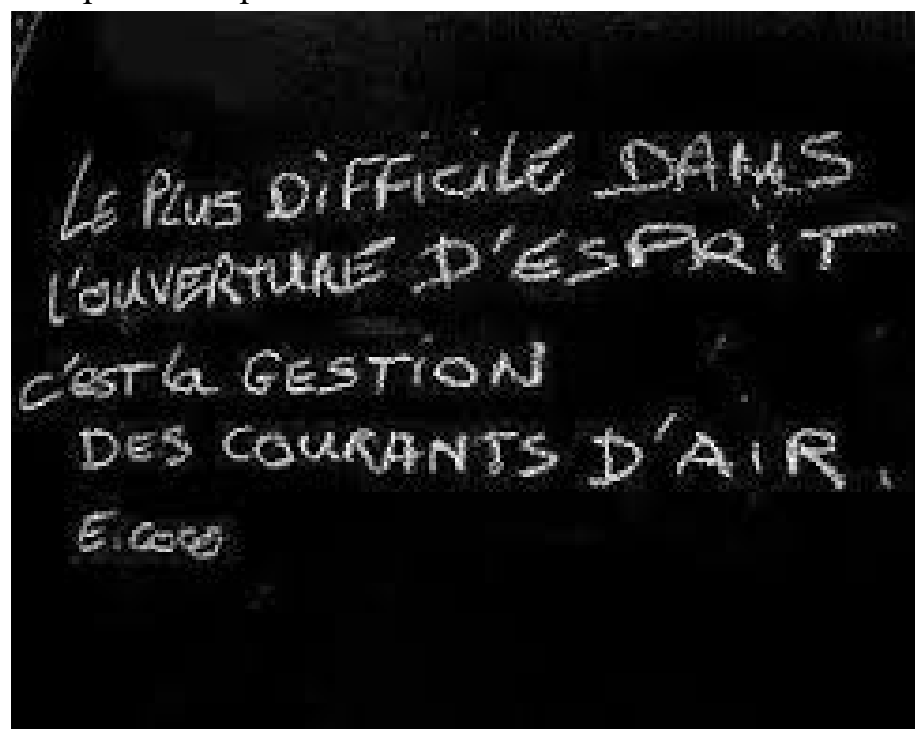 LE PLUS DiFFiCiLE DANS
L'OUVERTURE D'ESPRiT
C'EST la GESTiON
DES COURANTS D'AiR.